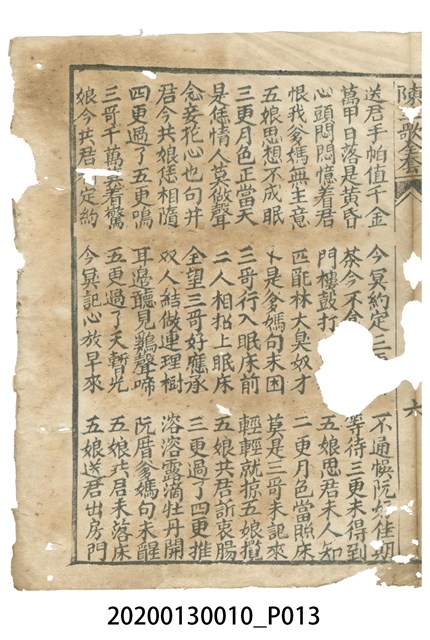 陳 歌全
六
送君手帕值千金 今冥約定三 不通悞阮 佳期
萬甲日落是黃昏 茶今不 等待三更未得到
心頭悶悶憶着君 門樓鼓打 五娘思君未人知
恨我爹媽無主意 匹配林大臭奴才 二更月色當照床
五娘思想不成眠 卜是爹媽句未困 莫是三哥未記來
三更月色正當天 三哥行入眠床前 輕輕就掠五娘攬
是恁情人莫做聲 二人相招上眠床 五娘共君訴衷腸
念妾花心也句井 全望三哥好應承 三更過了四更推
君今共娘恁相隨 双人結做連理樹 溶溶露滴牡丹開
四更過了五更鳴 耳邊聽見鷄聲啼 阮厝爹媽句未醒
三哥千萬 着驚 五更過了天暫光 五娘共君未落床
娘今共君 定約 今冥記心放早來 五娘送君出房門
20200130010_P013